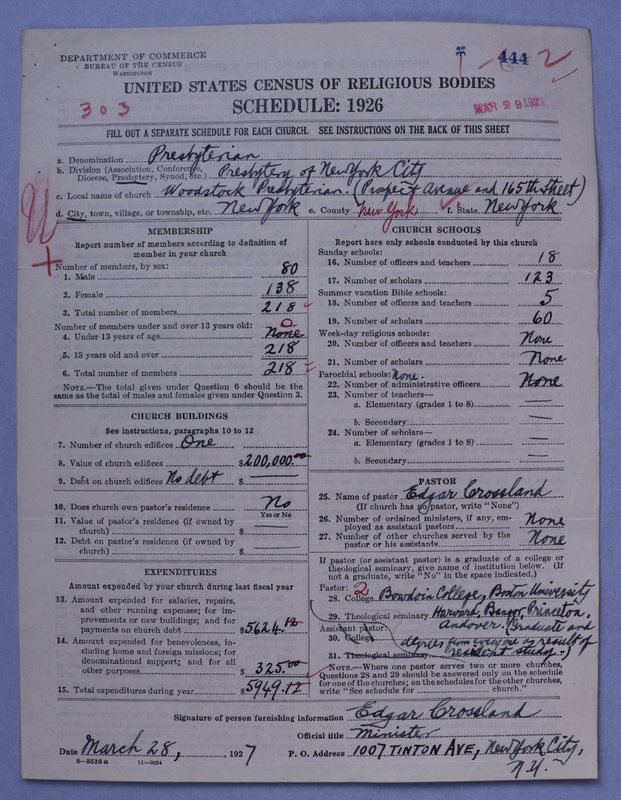 DEPARTMENT OF COMMERCE
BUREAU OF THE CENSUS
WASHINGTON
444 2
UNITED STATES CENSUS OF RELIGIOUS BODIES
303
SCHEDULE: 1926
MAR 29 1927
FILL OUT A SEPARATE SCHEDULE FOR EACH CHURCH. SEE INSTRUCTIONS ON THE BACK OF THIS SHEET
a. Denomination Presbyterian
b. Division (Association, Conference, Diocese, Presbytery, Synod, etc.) Presbytery of New York City
c. Local name of church Woodstock Presbyterian. (Prospect Avenue and 165th Street)
d. City, town, village, or township, etc. New York e. County New York f. State New York
MEMBERSHIP
Report number of members according to definition of
member in your church
Number of members, by sex:
1. Male 80
2. Female 138
3. Total number of members 218
Number of members under and over 13 years old:
4. Under 13 years of age None 0
5. 13 years old and over 218
6. Total number of members 218
NOTE.—The total given under Question 6 should be the
same as the total of males and females given under Question 3.
CHURCH BUILDINGS
See instructions, paragraphs 10 to 12
7. Number of church edifices One
8. Value of church edifices $200,000.00
9. Debt on church edifices No debt $ —
10. Does church own pastor's residence No
Yes or No
11. Value of pastor's residence (if owned by
church) $ —
12. Debt on pastor's residence (if owned by
church) $ —
EXPENDITURES
Amount expended by your church during last fiscal year
13. Amount expended for salaries, repairs,
and other running expenses; for im-
provements or new buildings; and for
payments on church debt $5624.12
14. Amount expended for benevolences, in-
cluding home and foreign missions; for
denominational support; and for all
other purposes 325.00
15. Total expenditures during year $5949.12
CHURCH SCHOOLS
Report here only schools conducted by this church
Sunday schools:
16. Number of officers and teachers 18
17. Number of scholars 123
Summer vacation Bible schools:
18. Number of officers and teachers 5
19. Number of scholars 60
Week-day religious schools:
20. Number of officers and teachers None
21. Number of scholars None
Parochial schools: None.
22. Number of administrative officers None
23. Number of teachers—
a. Elementary (grades 1 to 8) —
b. Secondary —
24. Number of scholars—
a. Elementary (grades 1 to 8) —
b. Secondary —
PASTOR
25. Name of pastor Edgar Crossland
(If church has no pastor, write "None")
26. Number of ordained ministers, if any, em-
ployed as assistant pastors None
27. Number of other churches served by the
pastor or his assistants None
If pastor (or assistant pastor) is a graduate of a college or
theological seminary, give name of institution below. (If
not a graduate, write "No" in the space indicated.)
Pastor: 2
28. College Bowdoin College, Boston University
29. Theological seminary Harvard, Bangor, Princeton,
Assistant pastor: Andover. (Graduate and
30. College degrees from everyone as result of
31. Theological seminary resident study.)
NOTE.—Where one pastor serves two or more churches,
Questions 28 and 29 should be answered only on the schedule
for one of the churches; on the schedules for the other churches,
write "See schedule for church."
Signature of person furnishing information Edgar Crossland
Official title Minister
Date March 28, 1927 P. O. Address 1007 TINTON AVE, New York City,
N.Y.
8—5518a 11—9054